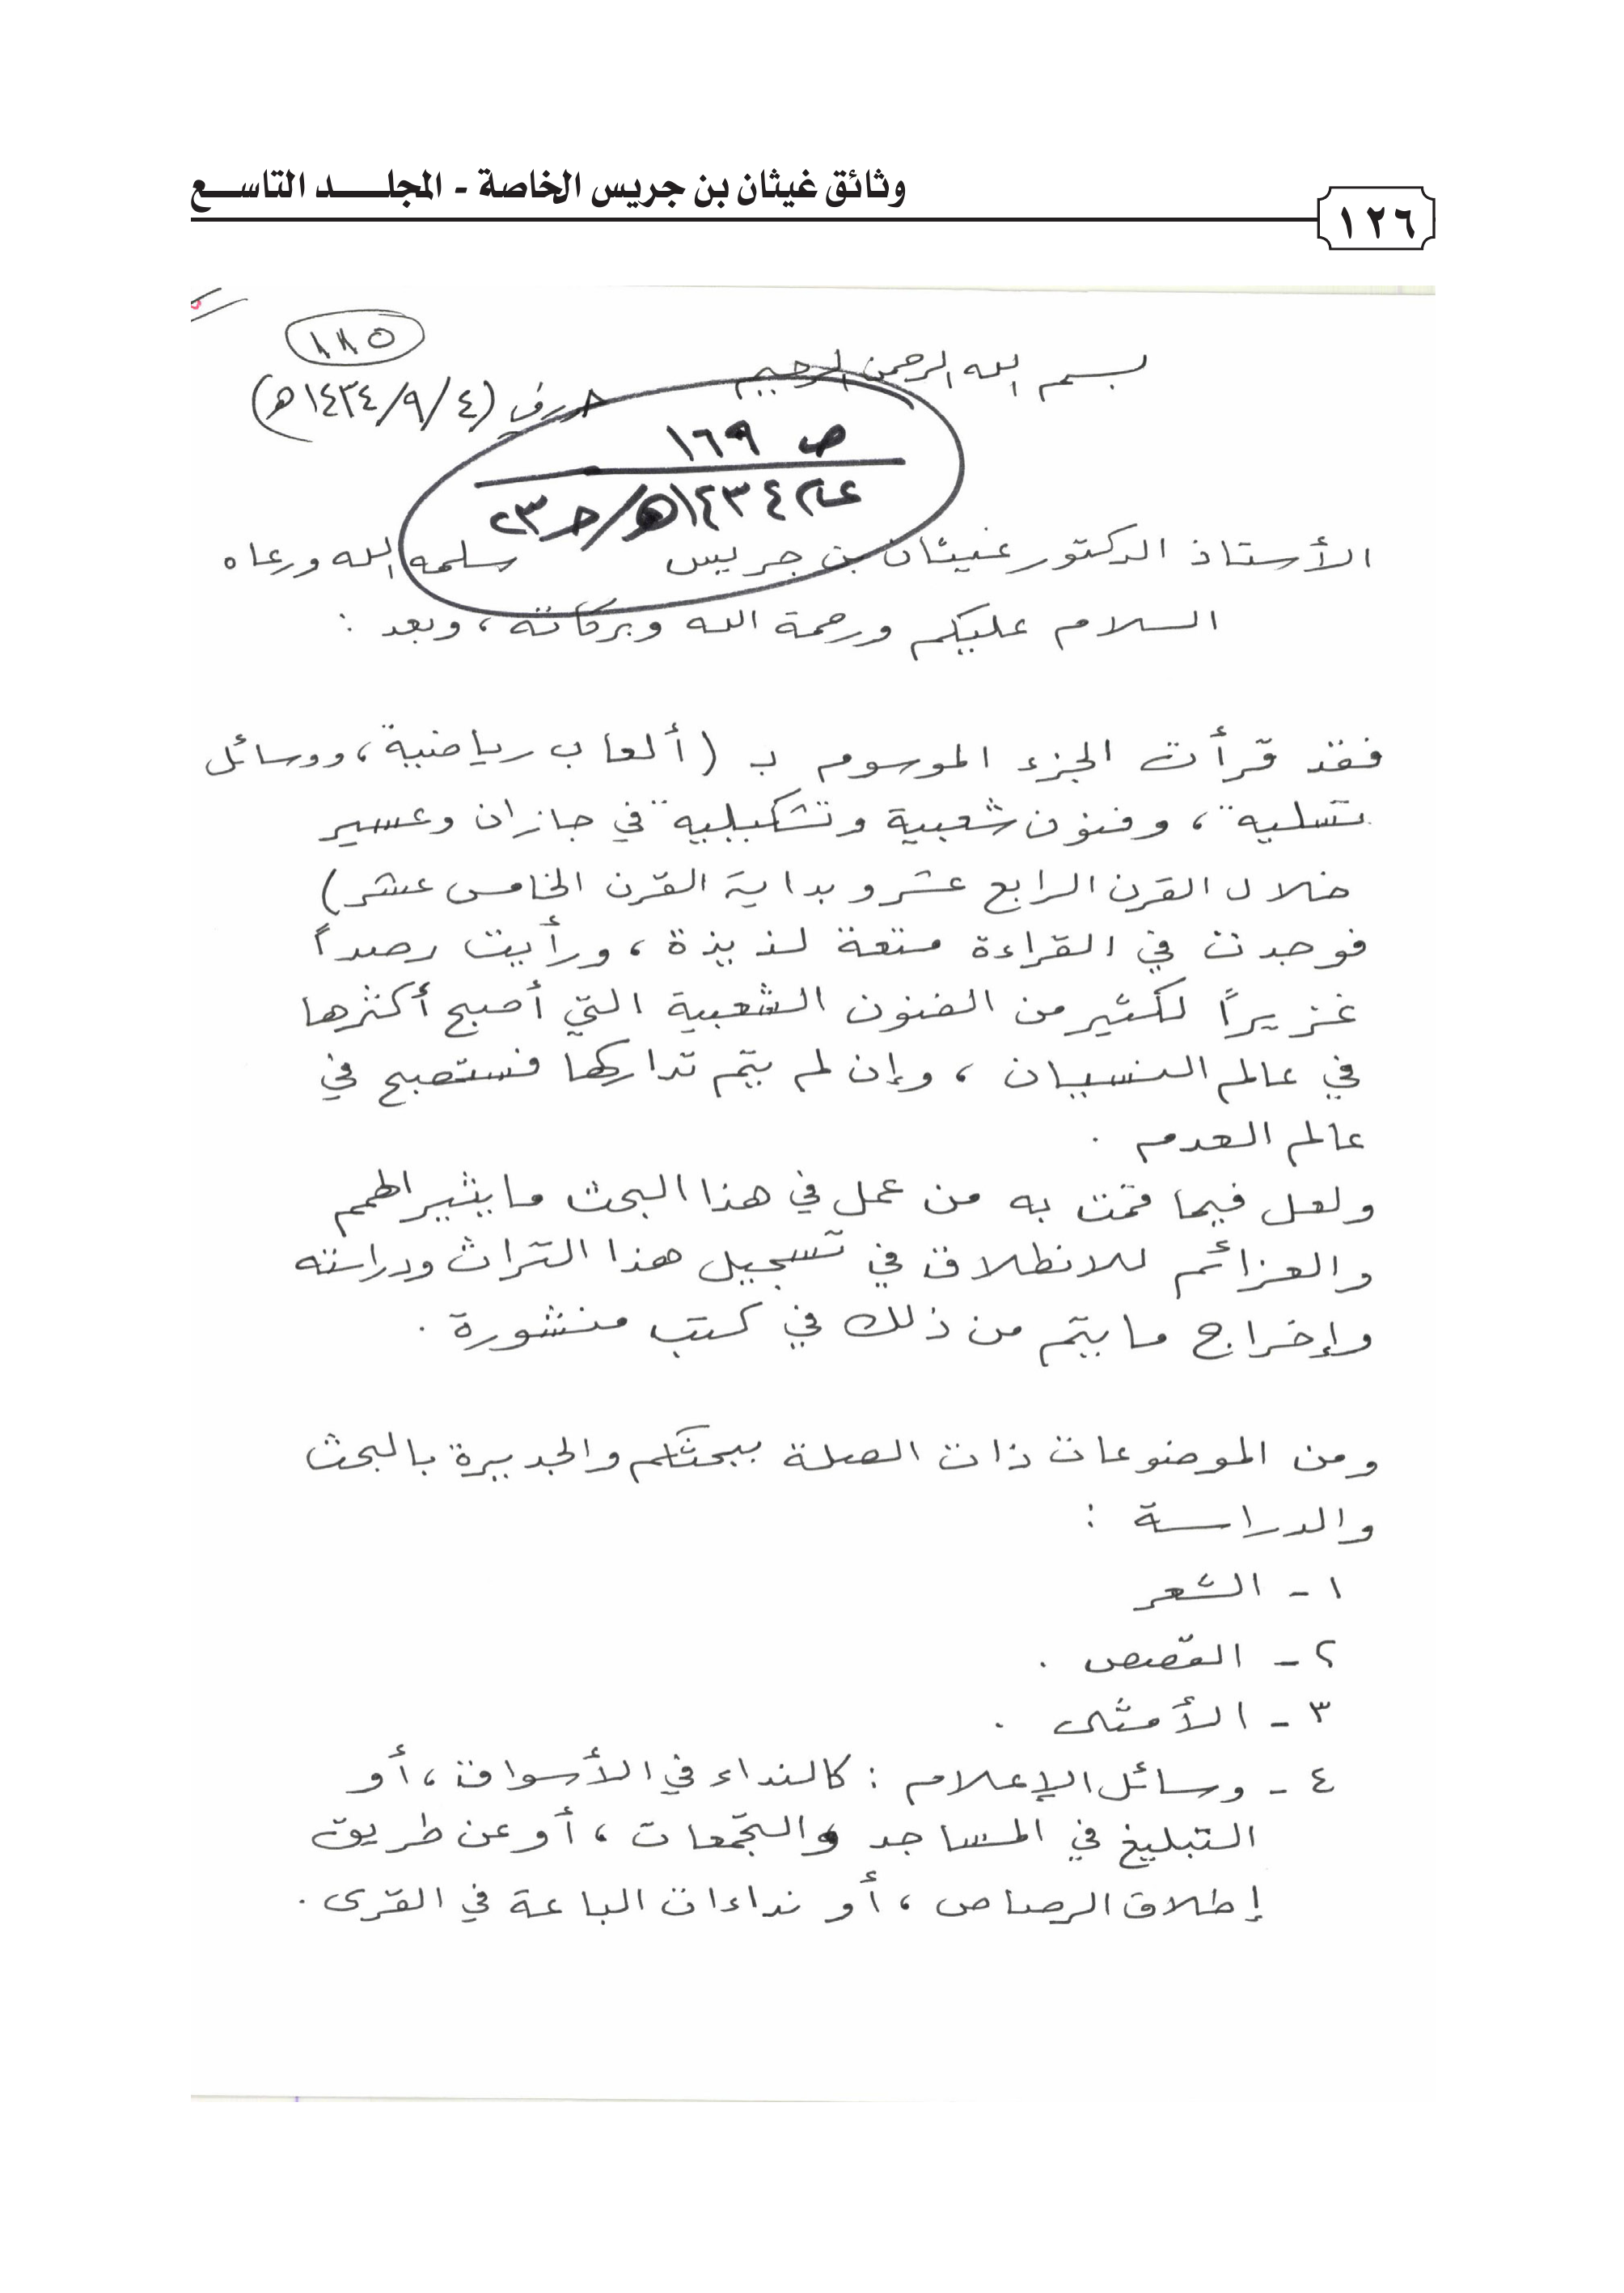 وثائق غيثان بن جريس الخاصة - المجلـــد التاســـع
١٢٦
١٨٥
بسم الله الرحمن الرحيم
حرر في (١٤٣٤/٩/٤هـ)
ص ١٦٩
عام ١٤٣٤هـ/حـ٢٣
الأستاذ الدكتور غيثان بن جريس سلمه الله ورعاه
السلام عليكم ورحمة الله وبركاته ، وبعد :
فقد قرأت الجزء الموسوم بـ (ألعاب رياضية ، ووسائل
تسلية ، وفنون شعبية وتشكيلية في جازان وعسير
خلال القرن الرابع عشر وبداية القرن الخامس عشر)
فوجدت في القراءة متعة لذيذة ، ورأيت رصداً
غزيراً لكثير من الفنون الشعبية التي أصبح أكثرها
في عالم النسيان ، وإن لم يتم تداركها فستصبح في
عالم العدم .
ولعل فيما قمت به من عمل في هذا البحث ما يثير الهمم
والعزائم للانطلاق في تسجيل هذا التراث ودراسته
وإخراج ما يتم من ذلك في كتب منشورة .
ومن الموضوعات ذات الصلة ببحثكم والجديرة بالبحث
والدراسة :
١ - الشعر
٢ - القصص .
٣ - الأمثال .
٤ - وسائل الإعلام : كالنداء في الأسواق ، أو
التبليغ في المساجد والتجمعات ، أو عن طريق
إطلاق الرصاص ، أو نداءات الباعة في القرى .